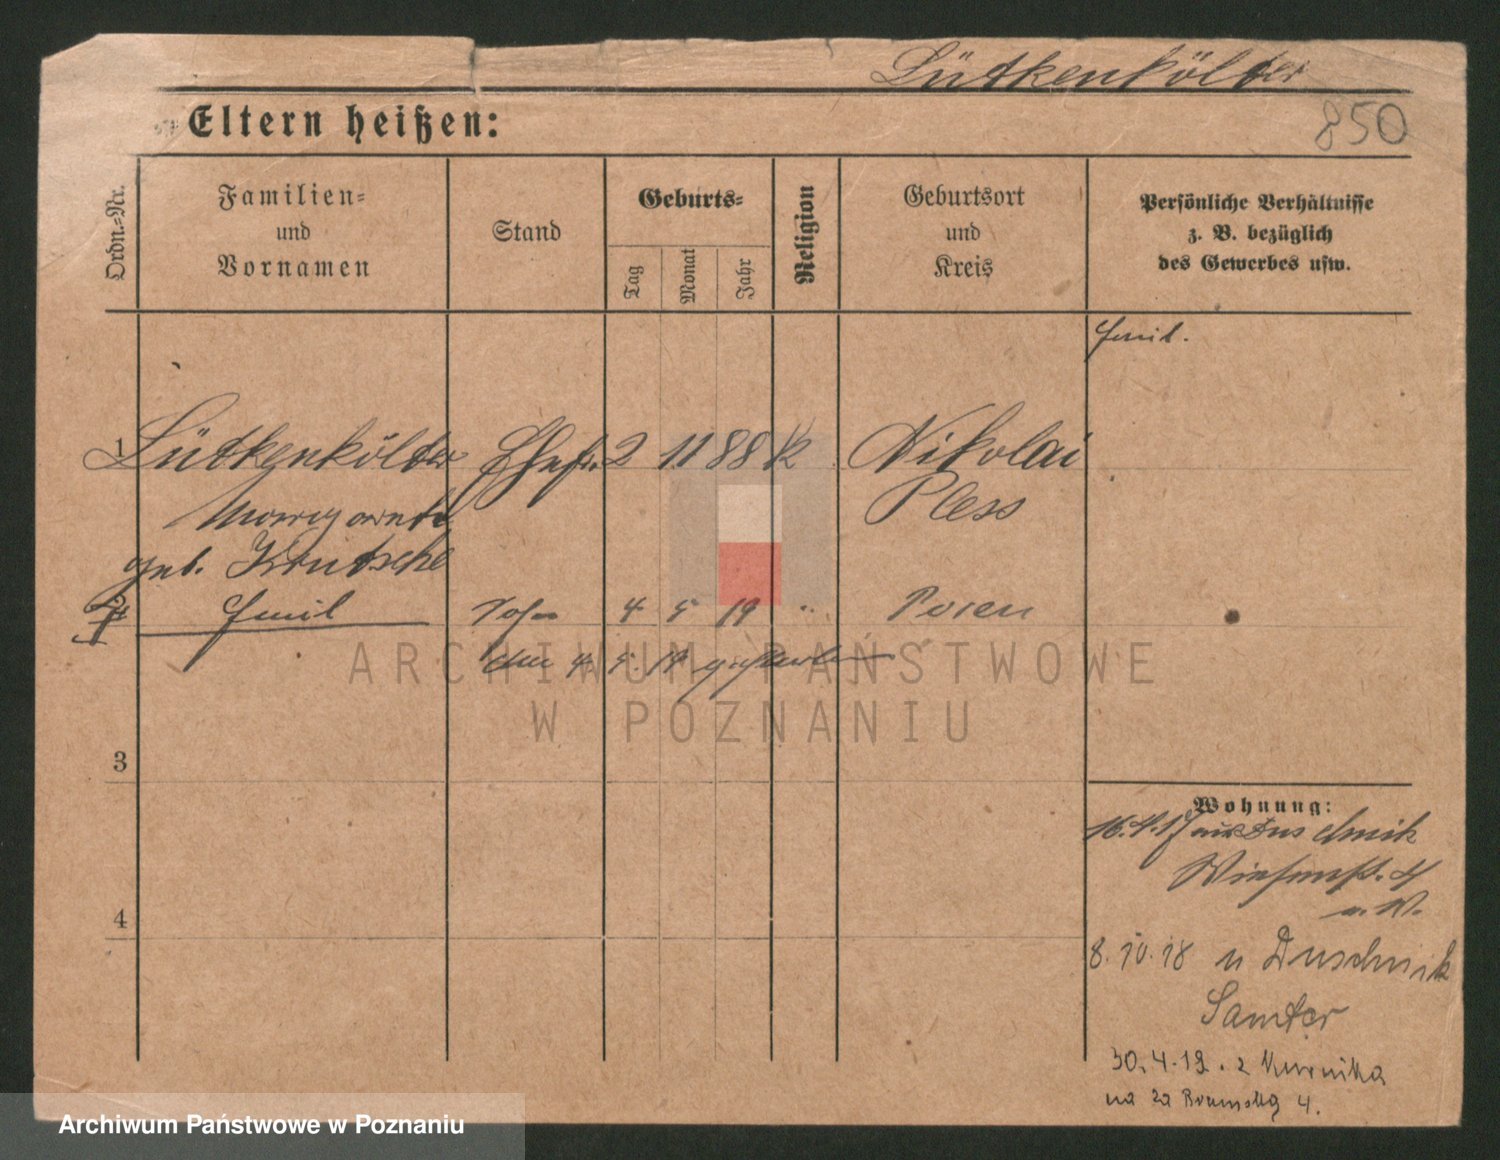 Lütkenkölter
850
Eltern heißen:
Ordn.-Nr.
Familien-
und
Vornamen
Stand
Geburts-
Tag
Monat
Jahr
Religion
Geburtsort
und
Kreis
Persönliche Verhältnisse
z. B. bezüglich
des Gewerbes usw.
Emil.
1 Lütkenkölter Ehefr. 2 11 88 K Nikolai
Margarete Pless
geb. Krutsche
2 Emil Sohn 4 5 19 " Posen
den 4. 5. 19 gestorben
3
4
Wohnung:
16.4.17 aus Duschnik
Wiesenstr. 4
8.10.18 n Duschnik
Samter
30.4.19. z Kurnika
na za Bramską 4.
ARCHIWUM PAŃSTWOWE
W POZNANIU
Archiwum Państwowe w Poznaniu